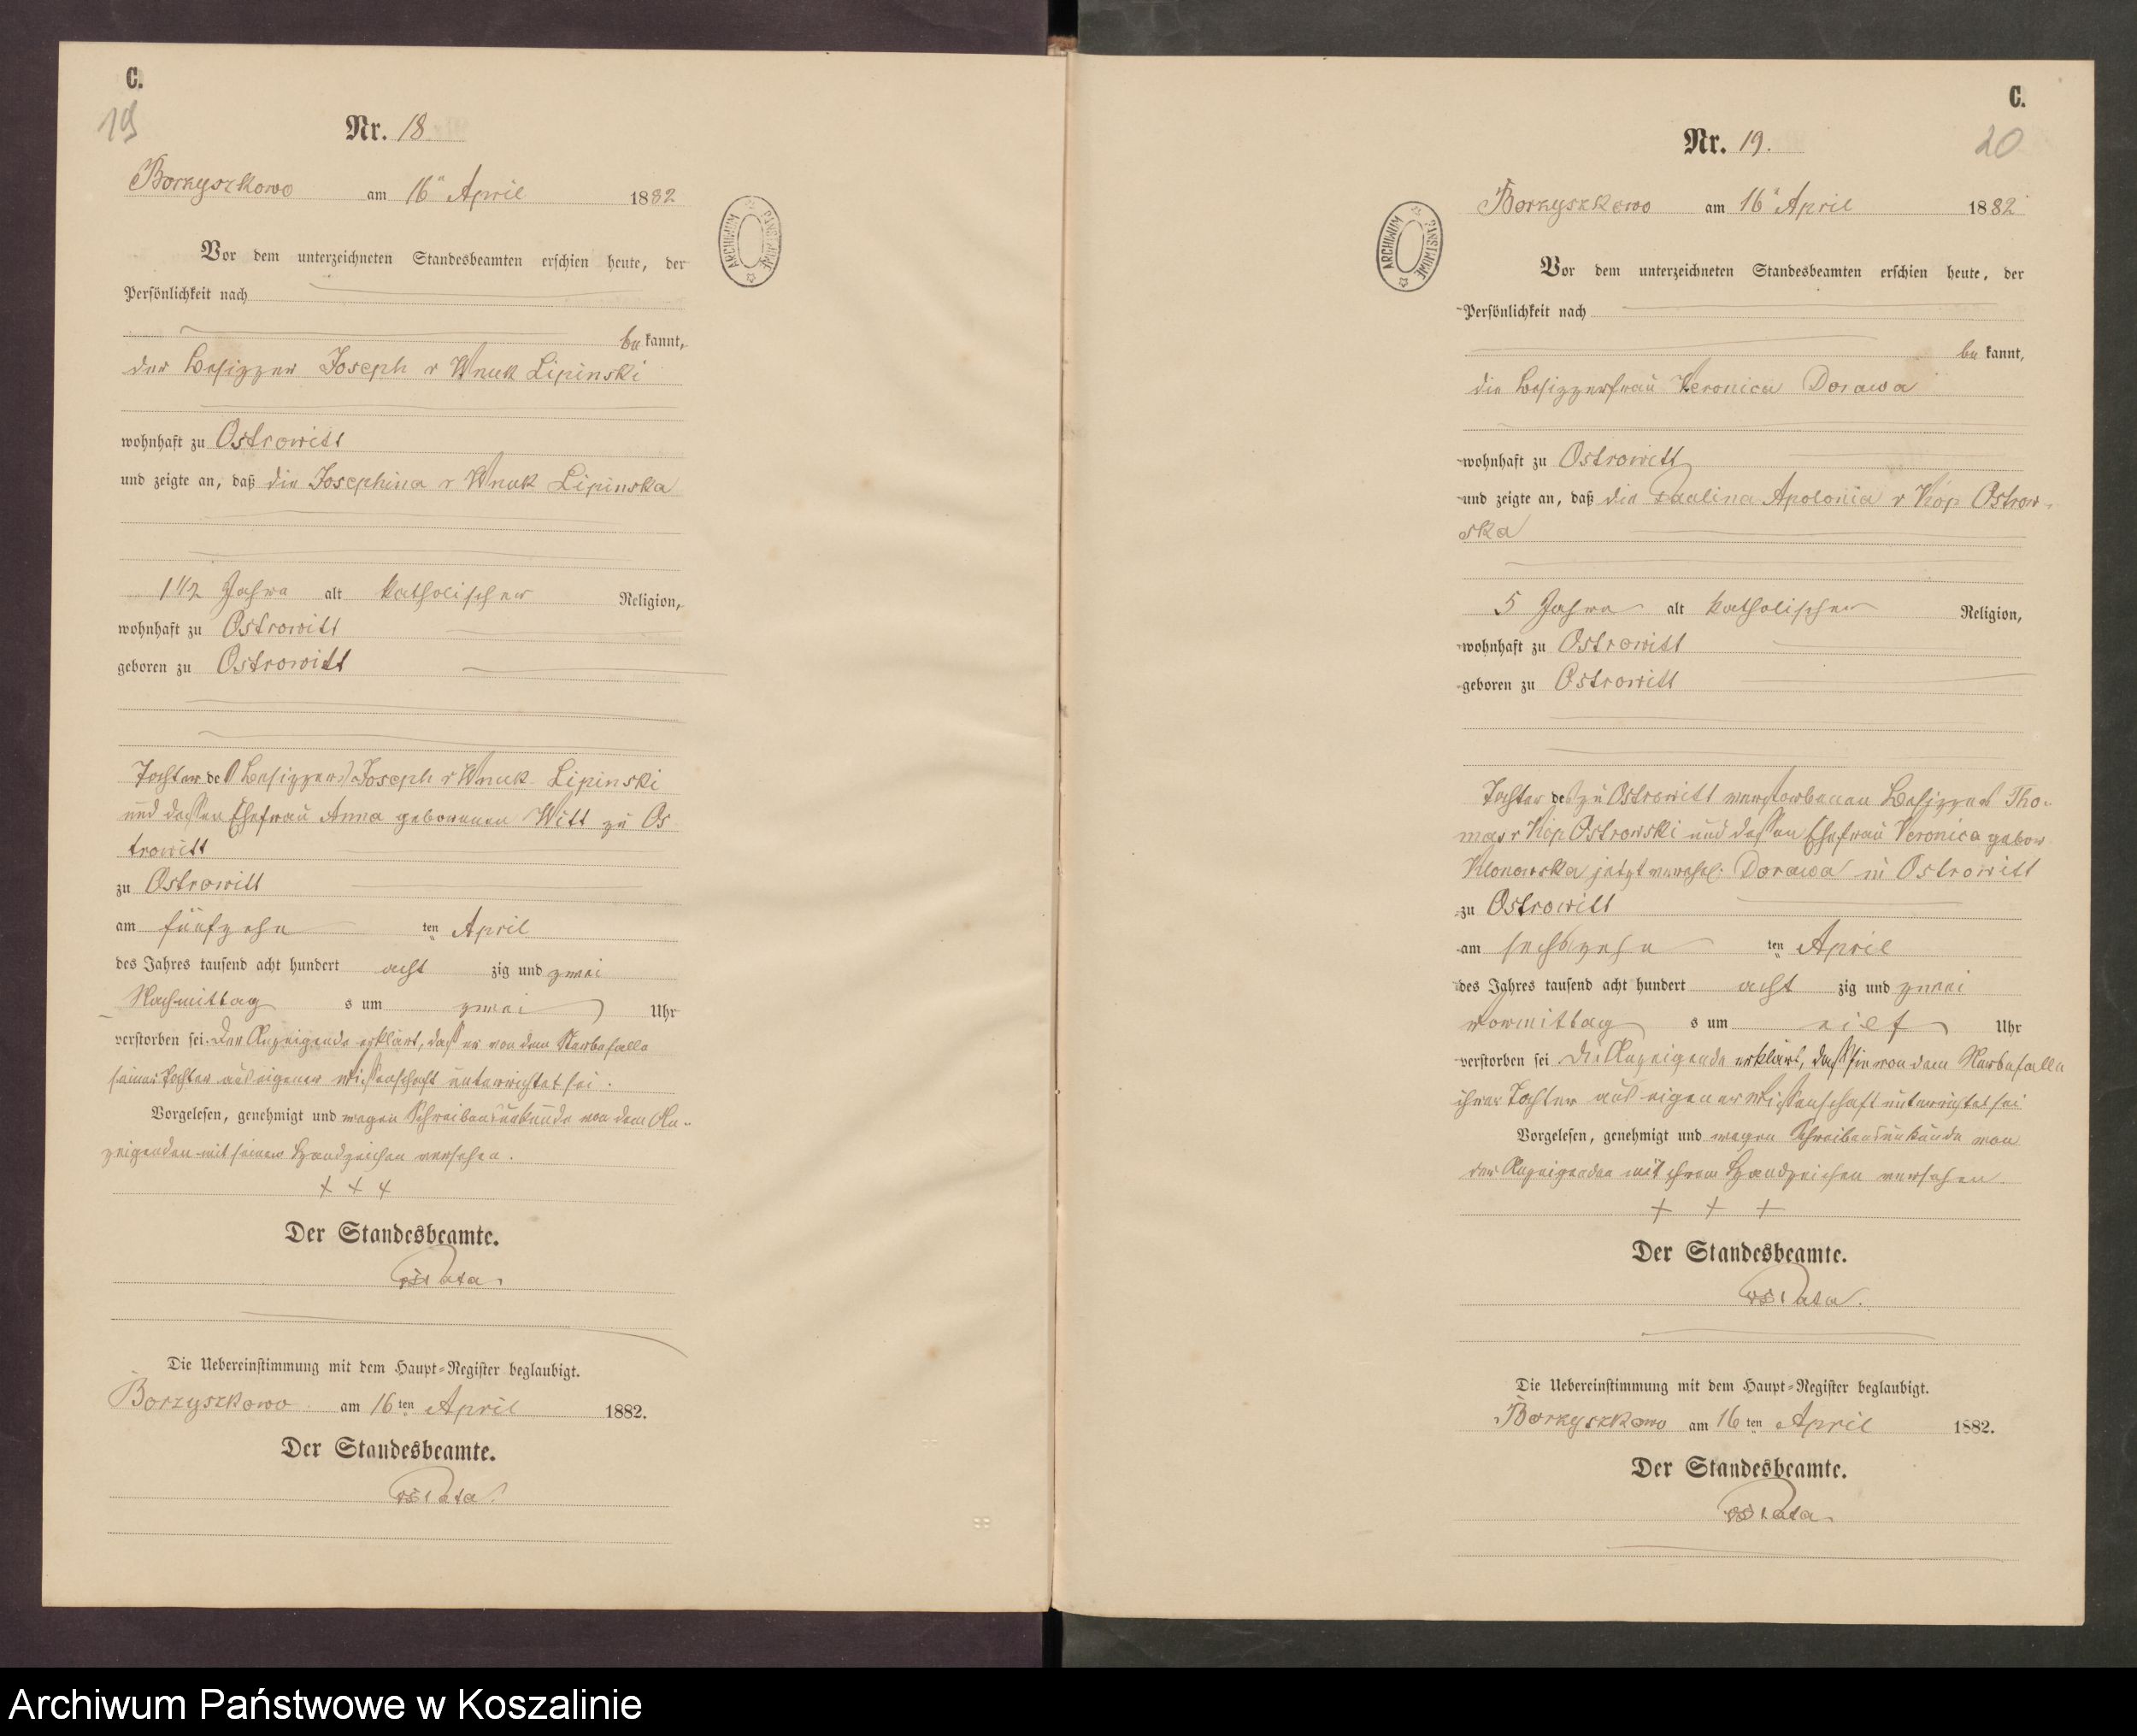 C.
19
Nr. 18
Borzyszkowo am 16ⁿ April 1882
Vor dem unterzeichneten Standesbeamten erschien heute, der
Persönlichkeit nach
be kannt,
der Besitzer Joseph v Wnuk Lipinski
wohnhaft zu Ostrowitt
und zeigte an, daß die Josephina v Wnuk Lipinska
1 1/2 Jahre alt katholischer Religion,
wohnhaft zu Ostrowitt
geboren zu Ostrowitt
Tochter des Besitzers Joseph v Wnuk Lipinski
und dessen Ehefrau Anna geborenen Witt zu Os
trowitt
zu Ostrowitt
am fünfzehn ten April
des Jahres tausend acht hundert acht zig und zwei
Nachmittag s um zwei Uhr
verstorben sei. Der Anzeigende erklärt, daß er von dem Sterbefalle
seiner Tochter aus eigener Wissenschaft unterrichtet sei.
Vorgelesen, genehmigt und wegen Schreibensunkunde von dem An-
zeigenden mit seinem Handzeichen versehen.
+ + +
Der Standesbeamte.
Die Uebereinstimmung mit dem Haupt-Register beglaubigt.
Borzyszkowo am 16 ten April 1882.
Der Standesbeamte.
C.
20
Nr. 19.
Borzyszkowo am 16ⁿ April 1882
Vor dem unterzeichneten Standesbeamten erschien heute, der
Persönlichkeit nach
be kannt,
die Besitzerfrau Veronica Dorawa
wohnhaft zu Ostrowitt
und zeigte an, daß die Paulina Apolonia v Kop Ostrow-
ska
5 Jahre alt katholischer Religion,
wohnhaft zu Ostrowitt
geboren zu Ostrowitt
Tochter des zu Ostrowitt verstorbenen Besitzers Tho-
mas v Kop Ostrowski und dessen Ehefrau Veronica gebor
Klonowska jetzt verehel. Dorawa in Ostrowitt
zu Ostrowitt
am sechszehn ten April
des Jahres tausend acht hundert acht zig und zwei
Vormittag s um eilf Uhr
verstorben sei Die Anzeigende erklärt, daß sie von dem Sterbefalle
ihrer Tochter aus eigener Wissenschaft unterrichtet sei
Vorgelesen, genehmigt und wegen Schreibensunkunde von
der Anzeigenden mit ihrem Handzeichen versehen
+ + +
Der Standesbeamte.
Die Uebereinstimmung mit dem Haupt-Register beglaubigt.
Borzyszkowo am 16 ten April 1882.
Der Standesbeamte.
ARCHIWUM PAŃSTWOWE
ARCHIWUM PAŃSTWOWE
Archiwum Państwowe w Koszalinie